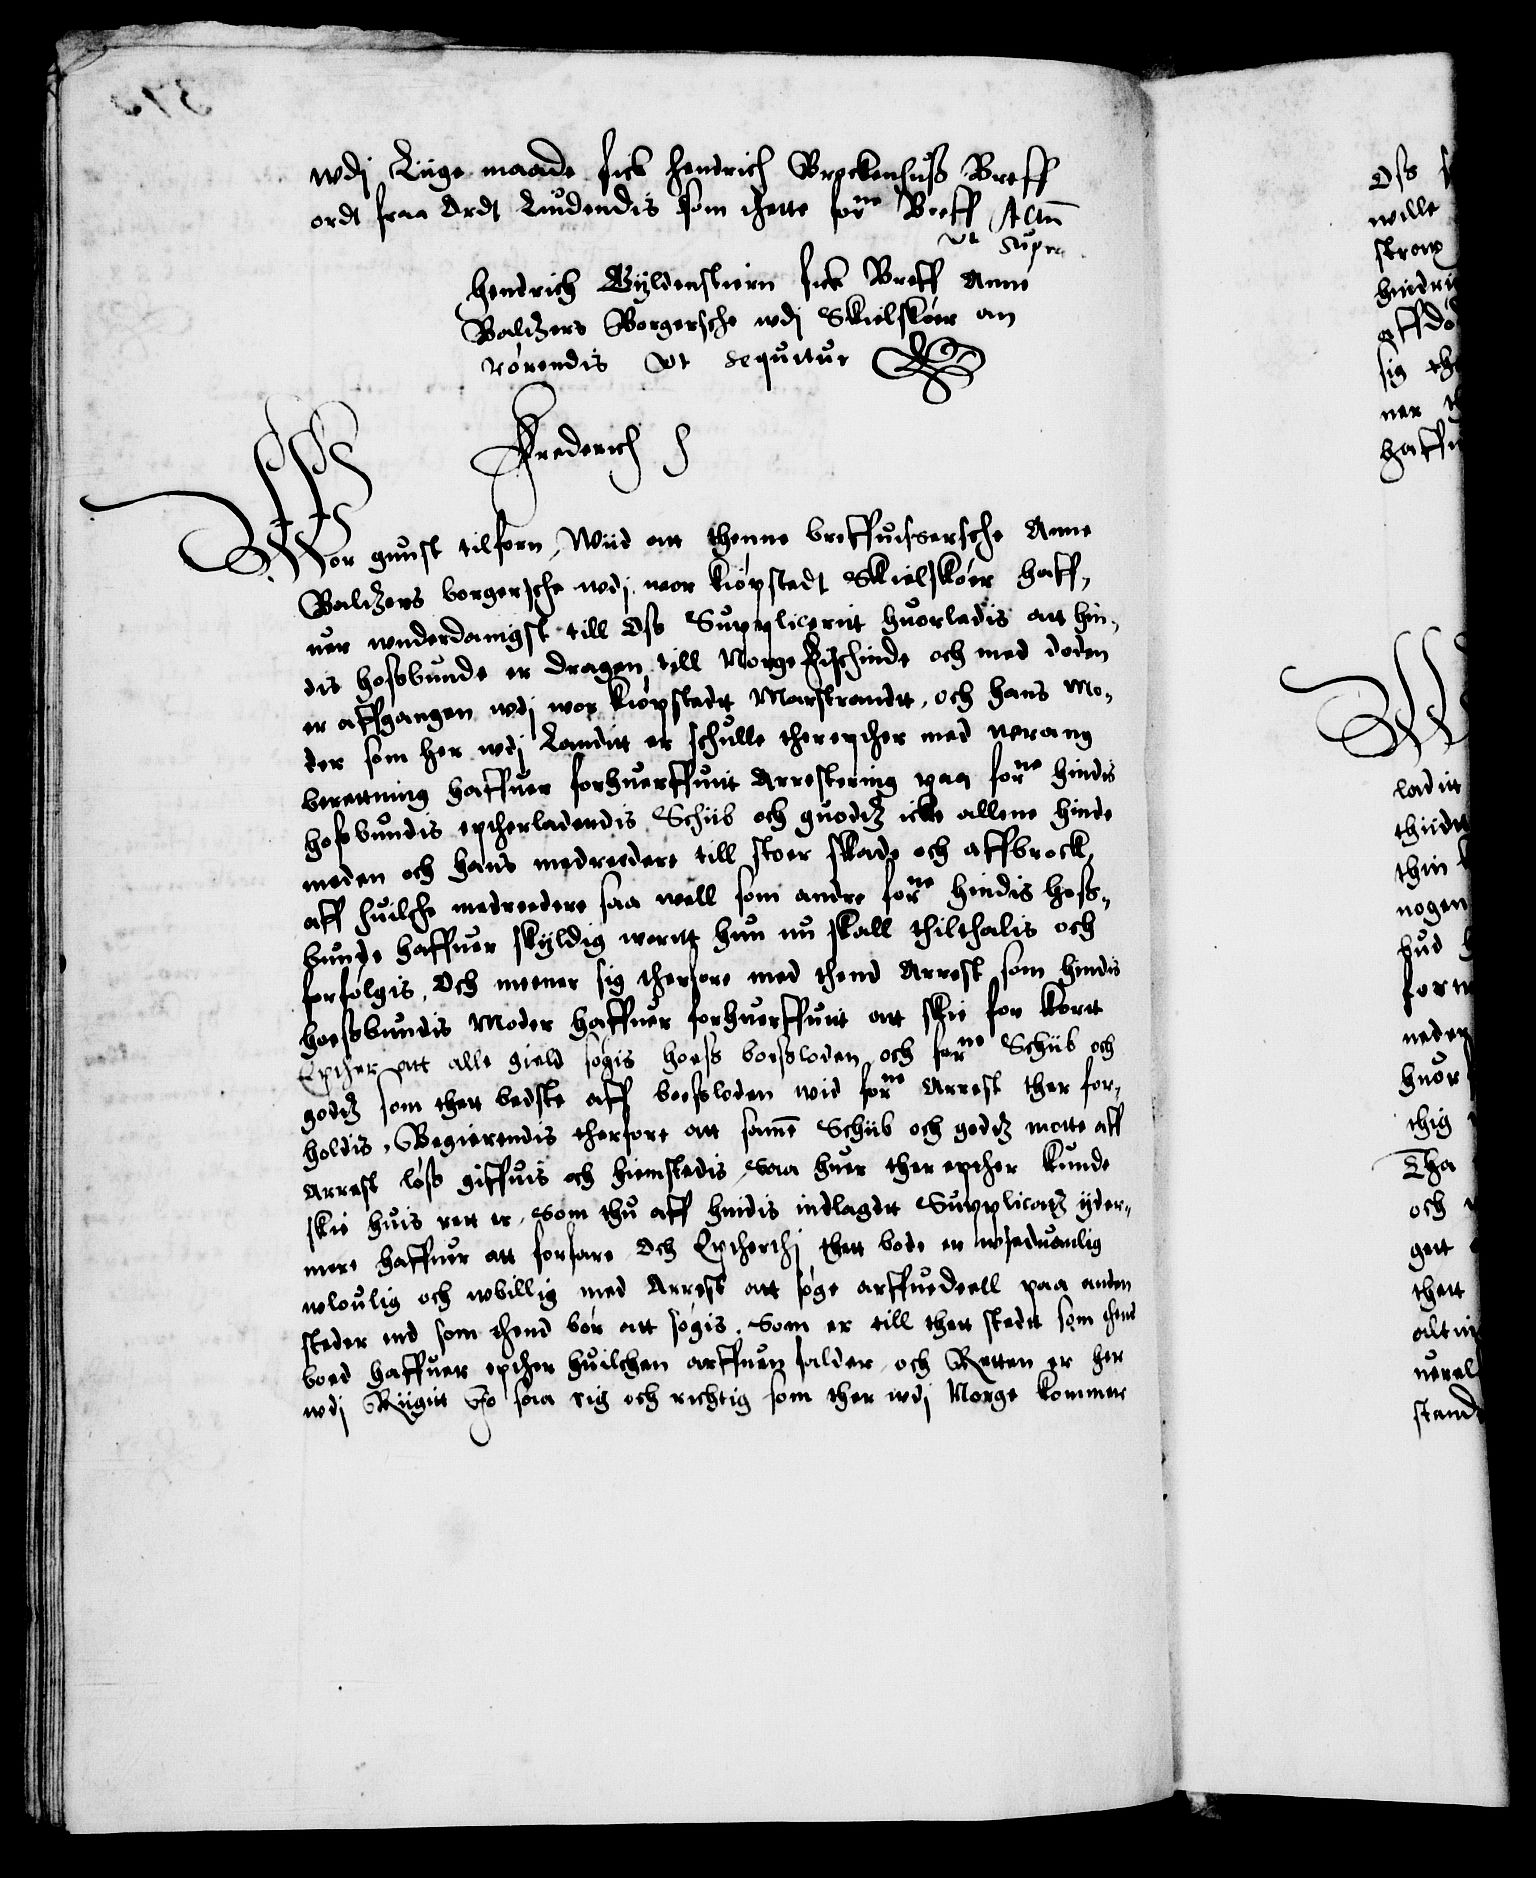 wdj Liige maade fick Hendrich Brockenhuss Breff
ordt fraa Ardt Liudendis som thette forne Breff Actum
vt supra
Hendrich Gyldenstiern fick Breff Anne
Baltzers Borgersche wdj Skielskøer an
rørendis vt sequitur
Frederich
Wor gunst tilforn, Wiid att thenne breffuisersche Anne
Baltzers borgersche wdj wor kiøpstedt Skielskøer haff-
uer wnderdanigst till Oss Suppliceritt huorledis att hin-
dis hossbunde er dragen till Norge Fischinde och med døden
er affgangen wdj wor kiøpstedt Marstrandt, och hans Mo-
der som her wdj Landitt er schulle therepther med wrang
berettning haffuer forhuerffuitt Arrestering paa forne hindis
hossbundis eptherladendis Schiib och guodtz icke allene hinde
meden och hans medreedere till stoer skade och affbrock,
aff huilche medreedere saa well som andre forne hindis hoss-
bunde haffuer skyldig weritt hun nu skall thilthalis och
forfølgis, Och meener sig therfore med thend Arrest som hindis
hossbundis Moder haffuer forhuerffuitt att skie for kortt
Epther att alle gield søgis hoess boessloden och forne Schiib och
godtz som thett bedste aff boessloden wid forne Arrest ther for-
holdis, Begierendis therfore att same Schiib och godtz motte aff
Arrest løss giffuis och hiemstedis, saa huer ther epther kunde
skie huis rett er, som thu aff hindis indlagde Supplicatz yder-
mere haffuer att forfare Och Eptherthj thett bode er wseduanlig
wloulig och wbillig med Arrest att søge arffuedeell paa anden
steder end som thend bør att søgis, Som er till thett stedt som thend
boed haffuer epther huilchen arffuen falder, och Retten er her
wdj Riigitt Jo saa rig och richtig som ther wdj Norge kommer